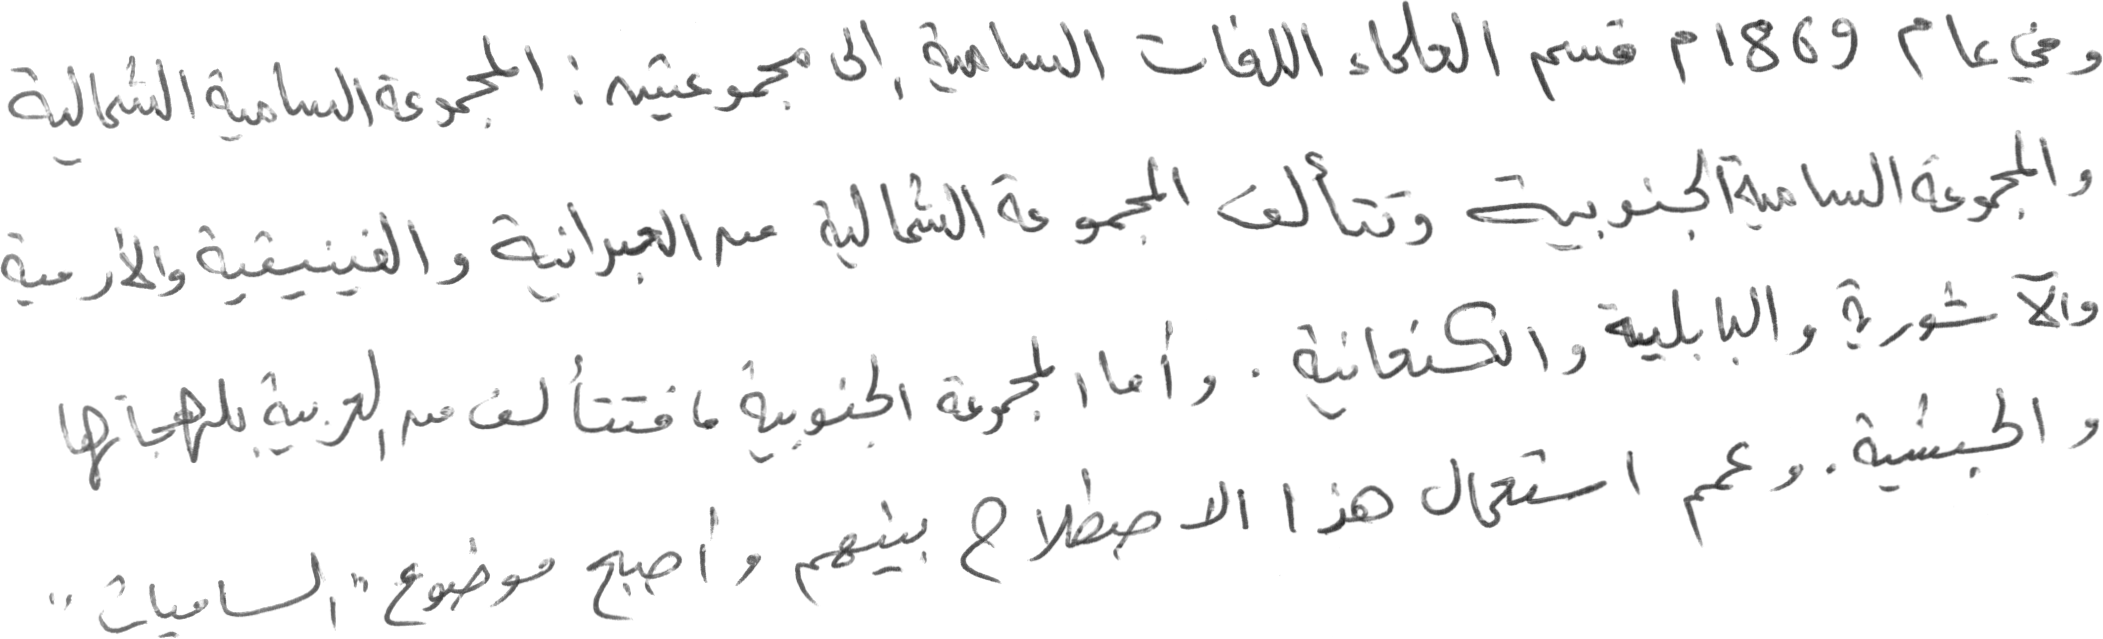 وفي عام 1869م قسم العلماء اللغات السامية إلى مجموعتين: المجموعة السامية الشمالية
والمجموعة السامية الجنوبية وتتألف المجموعة الشمالية من العبرانية والفينيقية والأرمية
والآشورية والبابلية والكنعانية. وأما المجموعة الجنوبية مافتتألف من العربية بلهجاتها
والحبشية. وعمم استعمال هذا الاصطلاح بينهم وأصبح موضوع "الساميات"